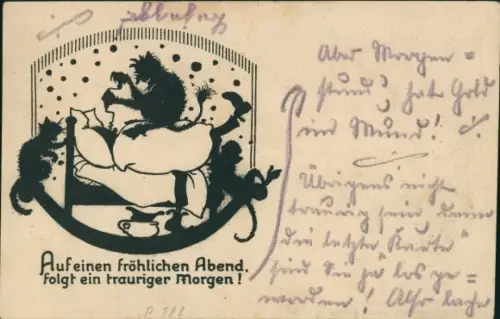 Auf einen fröhlichen Abend.
folgt ein trauriger Morgen!
Aber Morgen=
stund' hat Gold
im Mund!
Übrigens nicht
traurig sein, denn
die letzte
sind Sie ja los ge=
worden! Also